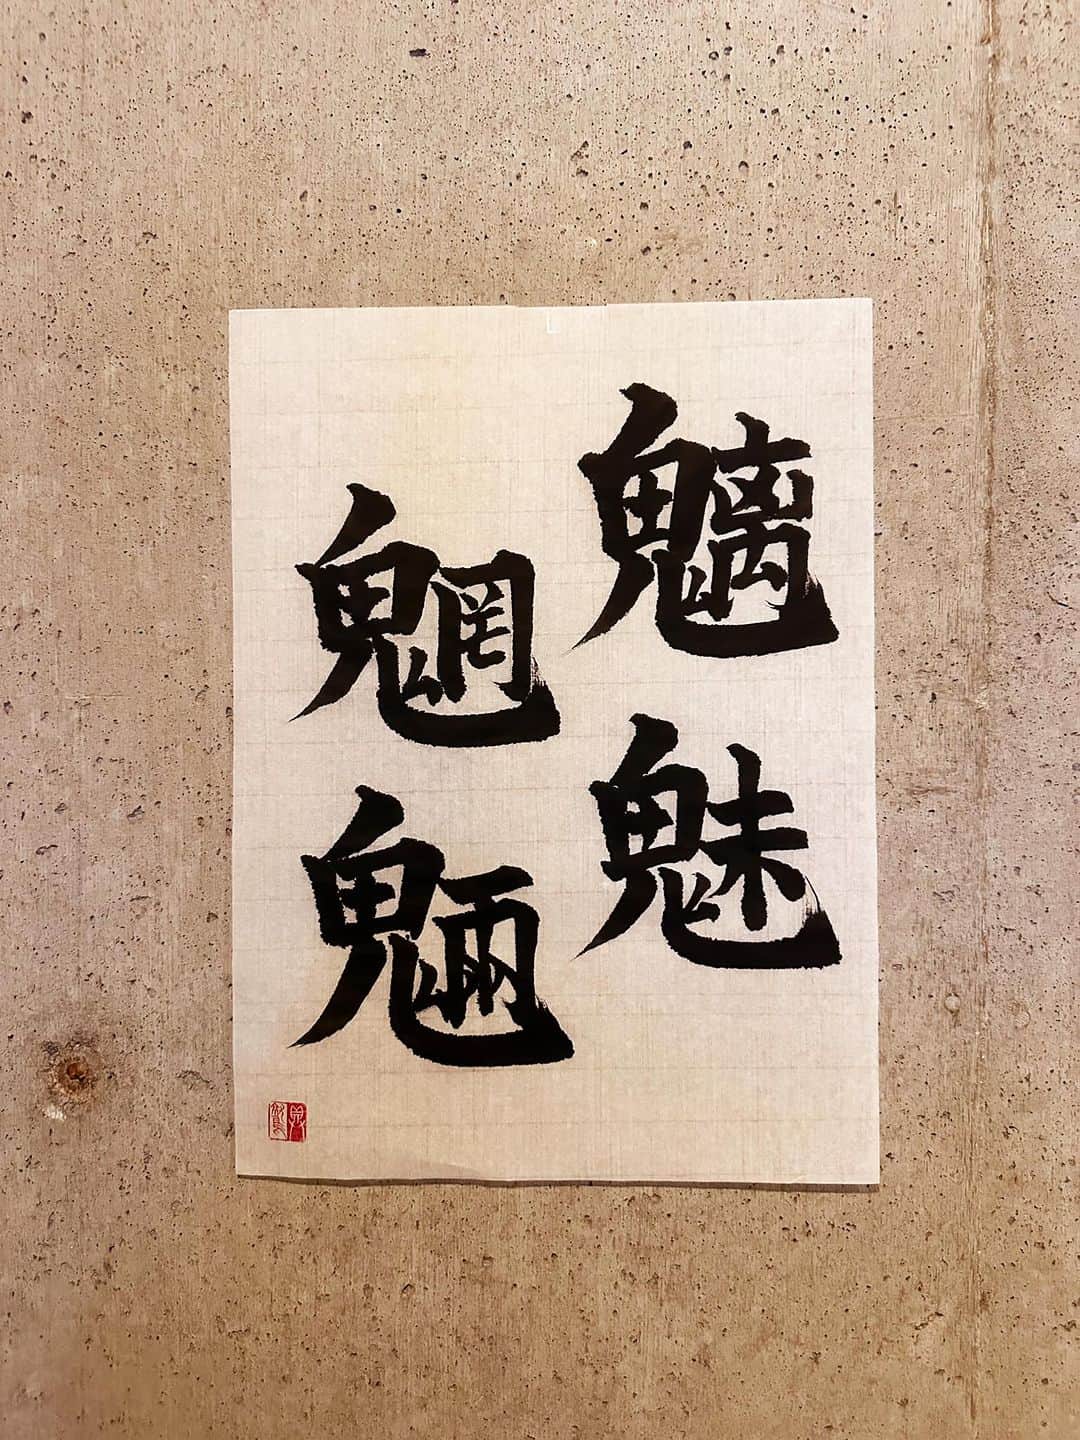 魑魅
魍魎